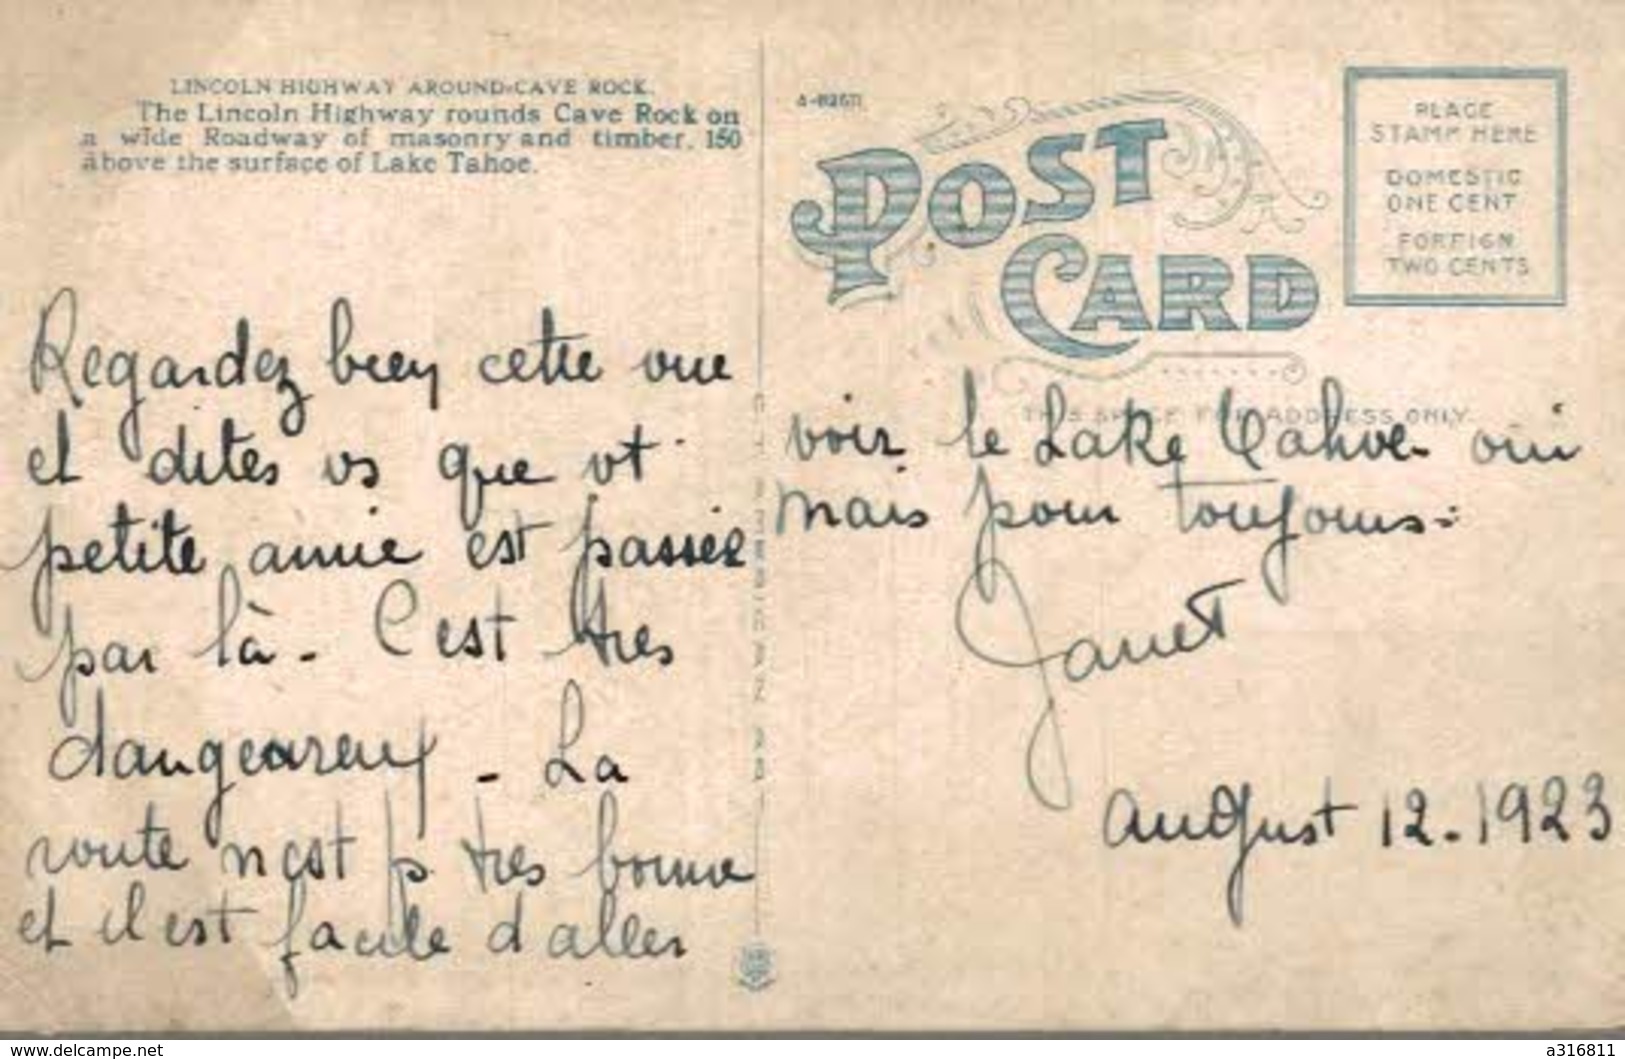 LINCOLN HIGHWAY AROUND CAVE ROCK.
The Lincoln Highway rounds Cave Rock on
a wide Roadway of masonry and timber, 150
above the surface of Lake Tahoe.
Regardez bien cette vue
et dites vs que vt
petite amie est passée
par là - C'est très
dangeareux - La
route n'est p. très bonne
et il est facile d'aller
POST CARD
PLACE
STAMP HERE
DOMESTIC
ONE CENT
FOREIGN
TWO CENTS
THIS SPACE FOR ADDRESS ONLY.
voir le Lake Tahoe oui
mais pour toujours -
Janet
August 12 - 1923
https://www.delcampe.net
a316811